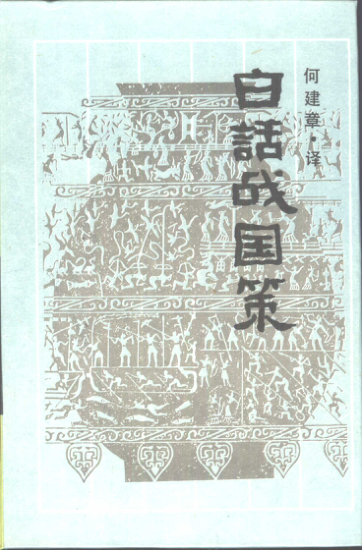 何建章·译
白話战国策